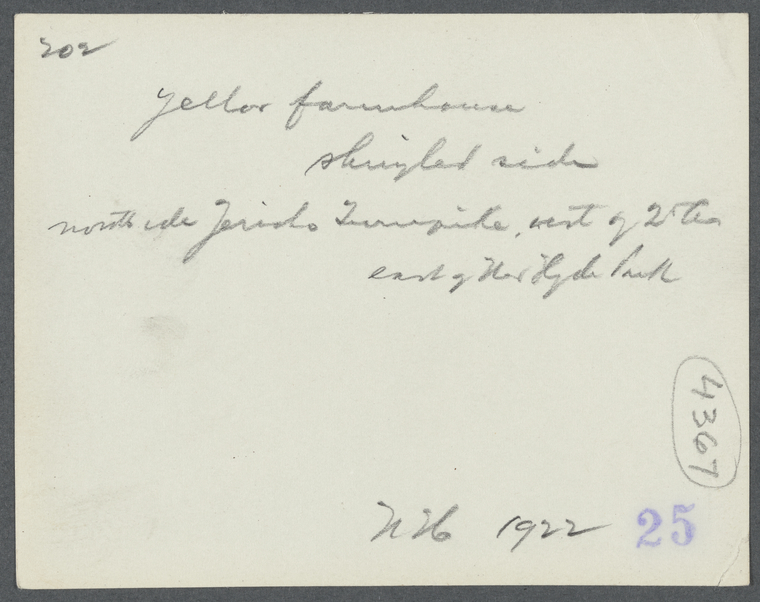 202
Yellow farmhouse
shingled side
north side Jericho Turnpike, west of
east of New Hyde Park
4367
1922 25